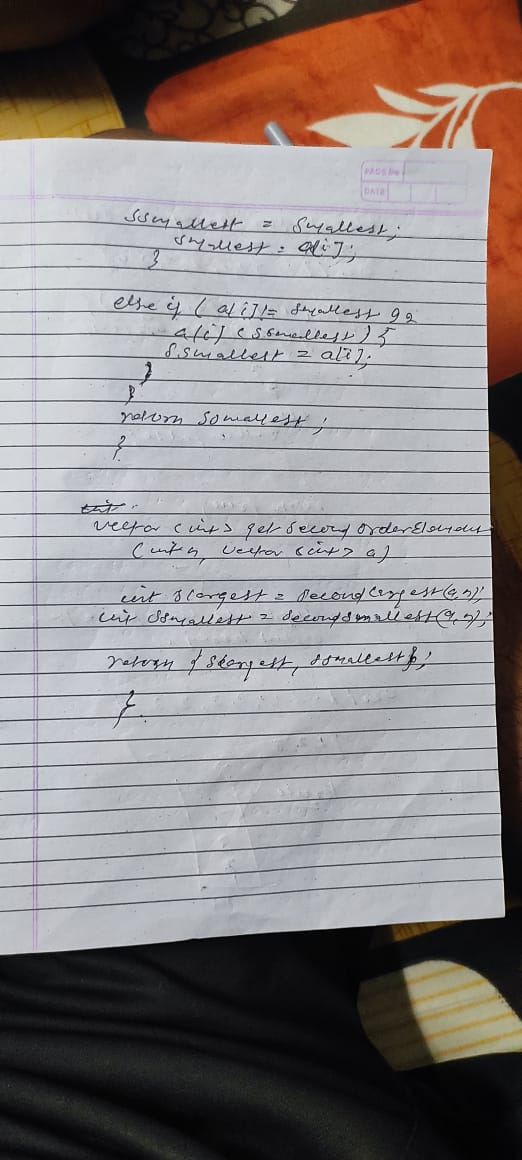 PAGE No.
DATE
ssmallest = smallest;
smallest = a[i];
}
else if ( a[i] != smallest &&
a[i] < ssmallest ) {
ssmallest = a[i];
}
}
return ssmallest ;
}
int
vector <int> getSecondOrderElements
(int n, vector <int> a)
int slargest = secondLargest(a,n);
int ssmallest = secondSmallest(a,n);
return { slargest, ssmallest};
}